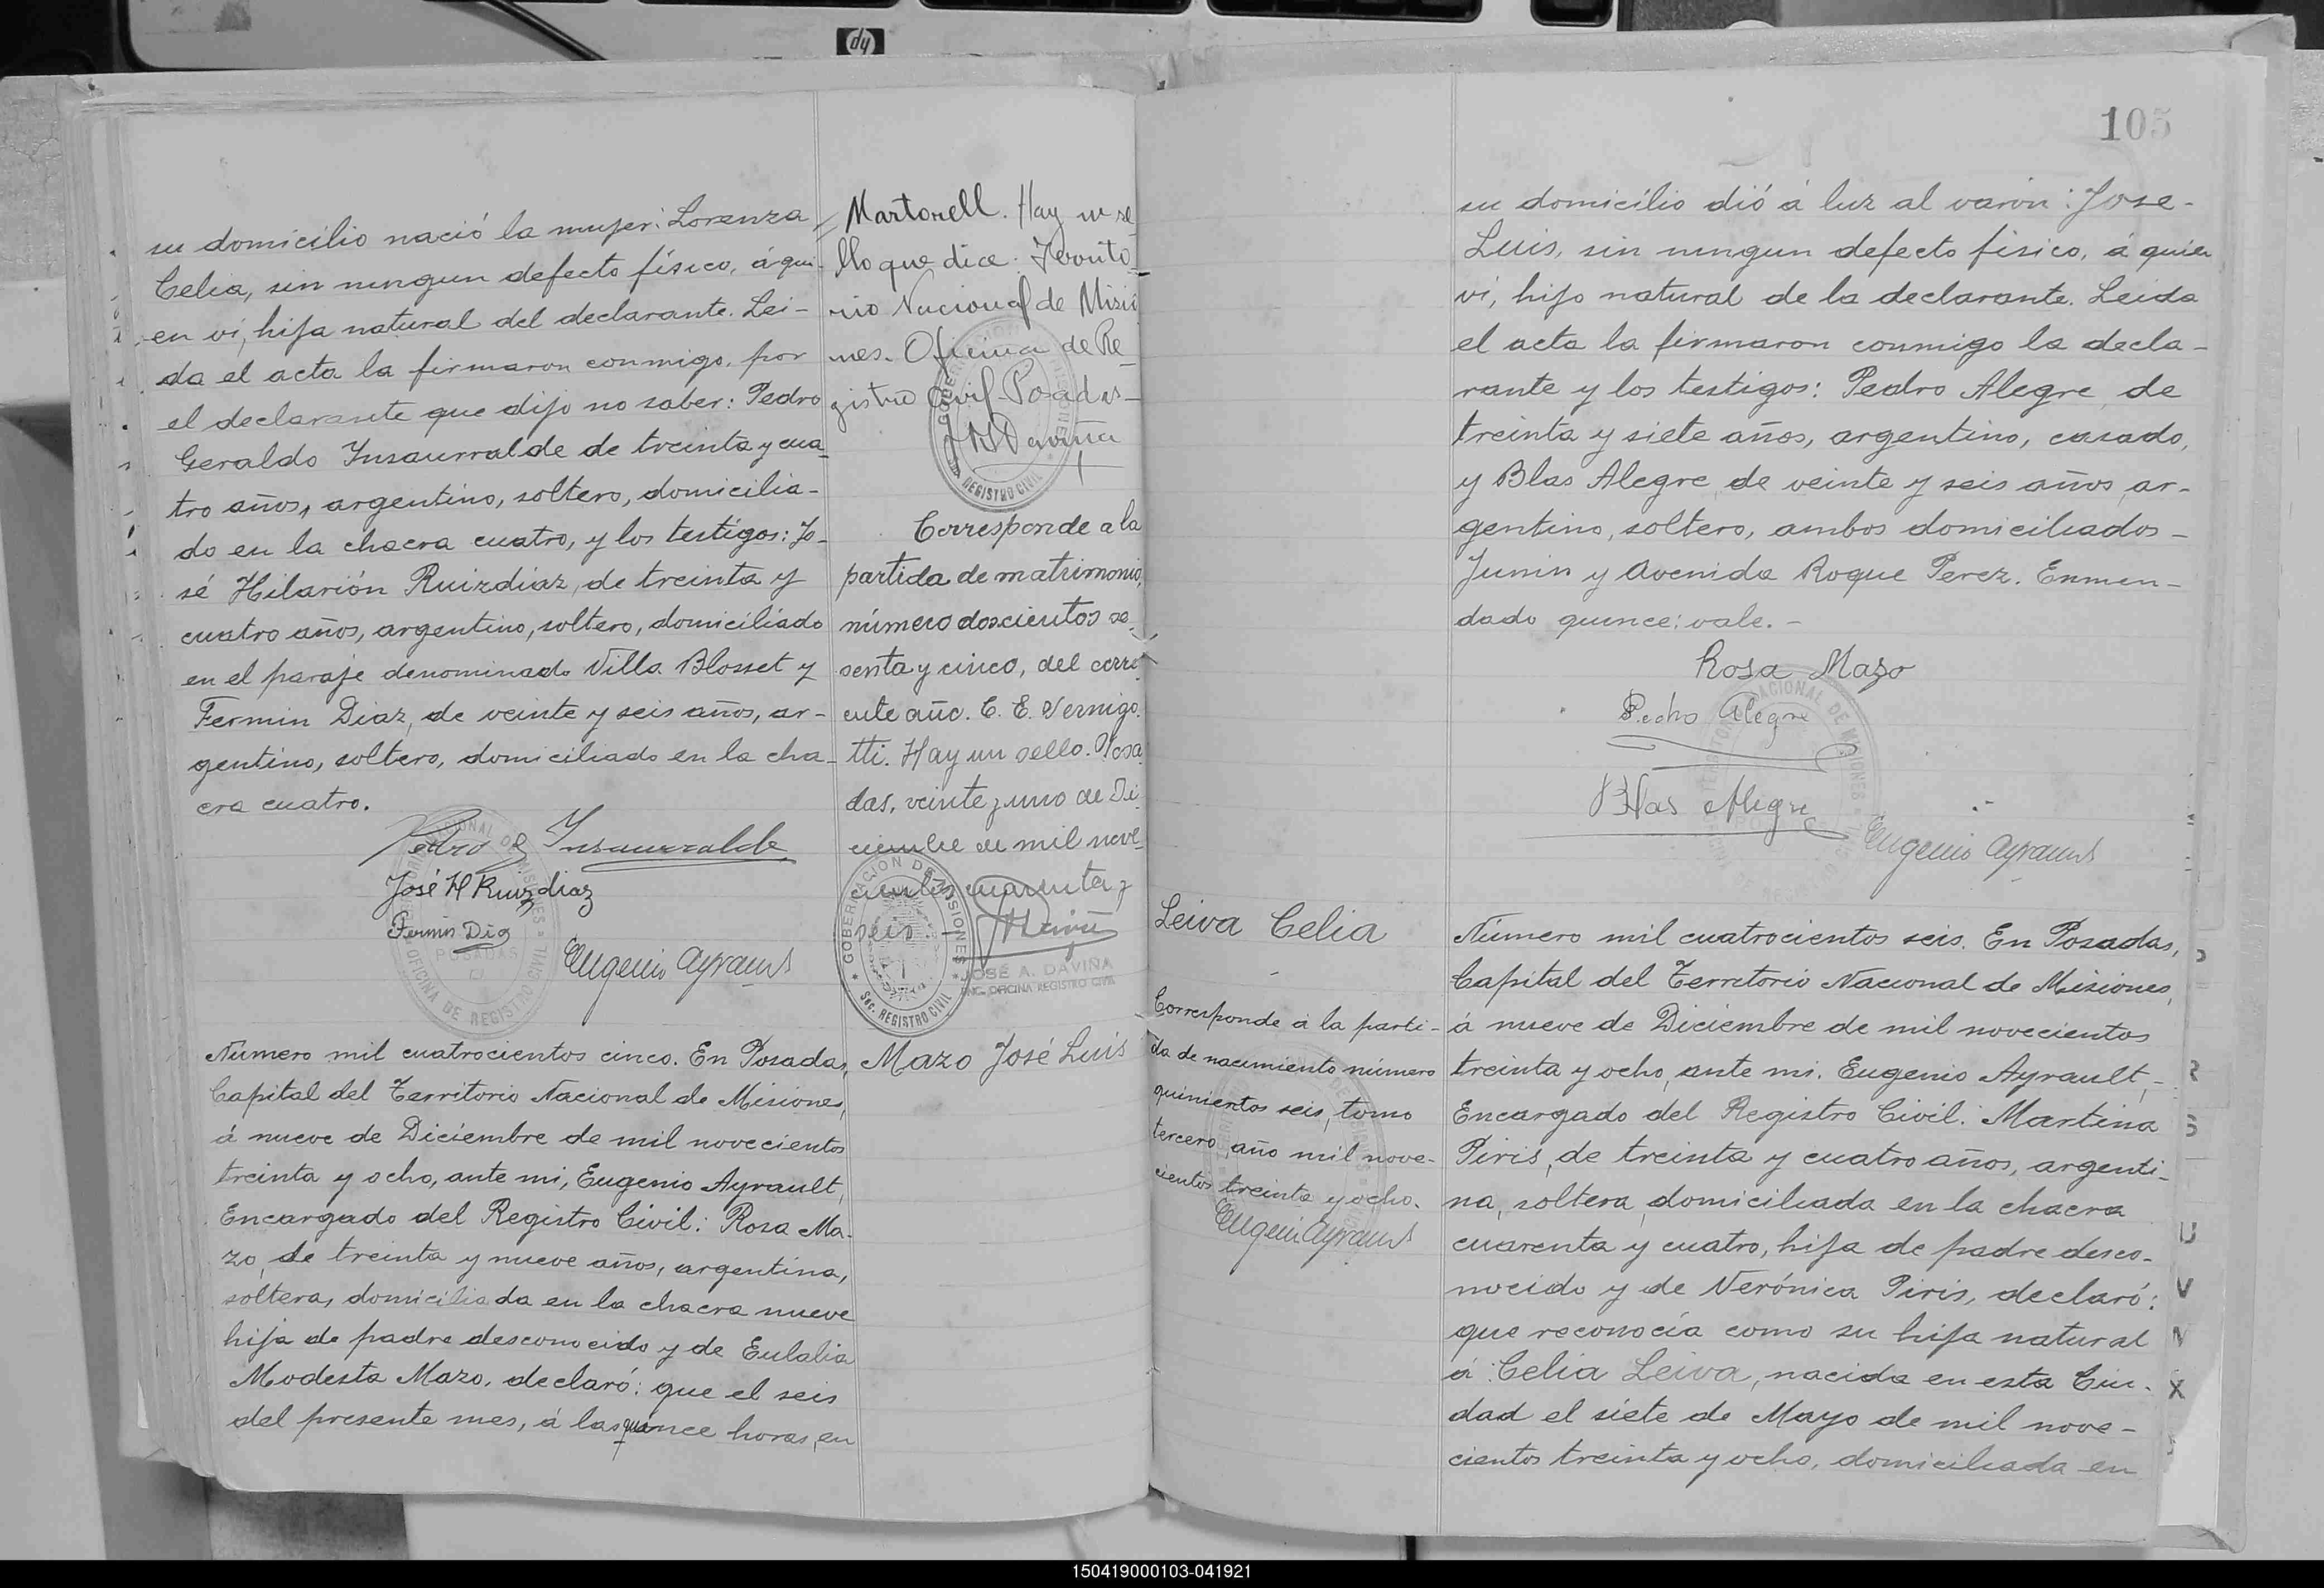 su domicilio nació la mujer: Lorenza
Celia, sin ningun defecto físico, á qui-
en ví, hija natural del declarante. Lei-
da el acta la firmaron conmigo, por
el declarante que dijo no saber: Pedro
Geraldo Insaurralde de treinta y cua-
tro años, argentino, soltero, domicilia-
do en la chacra cuatro, y los testigos: Jo-
sé Hilarión Ruizdíaz, de treinta y
cuatro años, argentino, soltero, domiciliado
en el paraje denominado Villa Blosset y
Fermin Diaz, de veinte y seis años, ar-
gentino, soltero, domiciliado en la cha-
cra cuatro.
Pedro G Insaurralde
José H Ruizdiaz
Fermin Diaz
Eugenio Ayrault
Número mil cuatrocientos cinco. En Posadas,
Capital del Territorio Nacional de Misiones,
á nueve de Diciembre de mil novecientos
treinta y ocho, ante mi, Eugenio Ayrault,
Encargado del Registro Civil: Rosa Ma-
zo, de treinta y nueve años, argentina,
soltera, domiciliada en la chacra nueve
hija de padre desconocido y de Eulalia
Modesta Mazo, declaró: que el seis
del presente mes, á las quince horas, en
Martorell. Hay un se-
llo que dice: Territo-
rio Nacional de Misio
nes. Oficina de Re-
gistro Civil Posadas-
Daviña
REGISTRO CIVIL
Corresponde a la
partida de matrimonio,
número doscientos se-
senta y cinco, del corri-
ente año. C. E. Vernigo-
tti. Hay un sello. Posa-
das, veinte y uno de Di-
ciembre de mil nove-
cientos cuarenta y
seis -
GOBERNACION DE MISIONES
Sec. REGISTRO CIVIL
JOSÉ A. DAVIÑA
ENC. OFICINA REGISTRO CIVIL
Mazo José Luis
105
su domicilio dió á luz al varón: Jose-
Luis, sin ningun defecto físico, á quien
ví, hijo natural de la declarante. Leida
el acta la firmaron conmigo la decla-
rante y los testigos: Pedro Alegre, de
treinta y siete años, argentino, casado,
y Blas Alegre, de veinte y seis años, ar-
gentino, soltero, ambos domiciliados -
Junin y Avenida Roque Perez. Enmen-
dado quince: vale. -
Rosa Mazo
Pedro Alegre
Blas Alegre
Eugenio Ayrault
Leiva Celia
Corresponde á la parti-
da de nacimiento número
quinientos seis, tomo
tercero, año mil nove-
cientos treinta y ocho.
Eugenio Ayrault
Número mil cuatrocientos seis. En Posadas,
Capital del Territorio Nacional de Misiones,
á nueve de Diciembre de mil novecientos
treinta y ocho, ante mi. Eugenio Ayrault,-
Encargado del Registro Civil: Martina
Piris, de treinta y cuatro años, argenti-
na, soltera, domiciliada en la chacra
cuarenta y cuatro, hija de padre desco-
nocido y de Verónica Piris, declaró:
que reconocía como su hija natural
á: Celia Leiva, nacida en esta Ciu-
dad el siete de Mayo de mil nove-
cientos treinta y ocho, domiciliada en
150419000103-041921